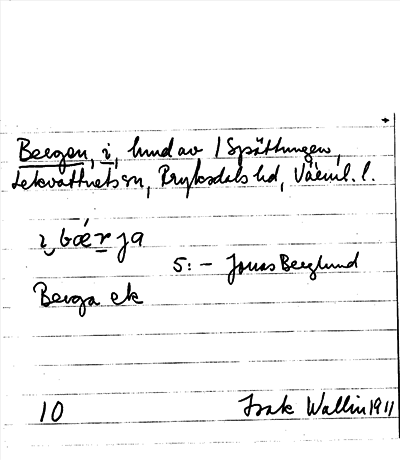 Bergen, i, hmd av /Spättungen,
Lekvattnets sn, Fryksdals hd, Värml. l.
ɩ bæ̀r ja
5: – Jonas Berglund
Berga ek
10 Isak Wallin 1911